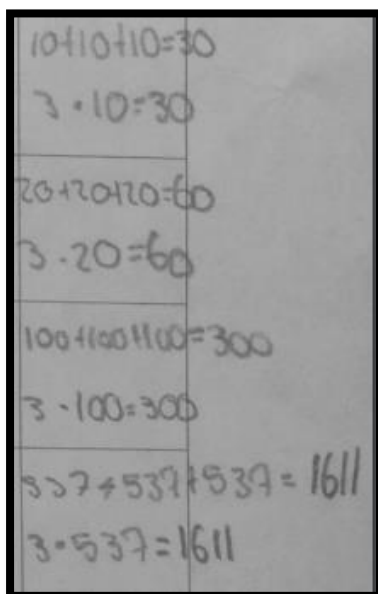 10+10+10=30
3·10=30
20+20+20=60
3·20=60
100+100+100=300
3·100=300
537+537+537=1611
3·537=1611